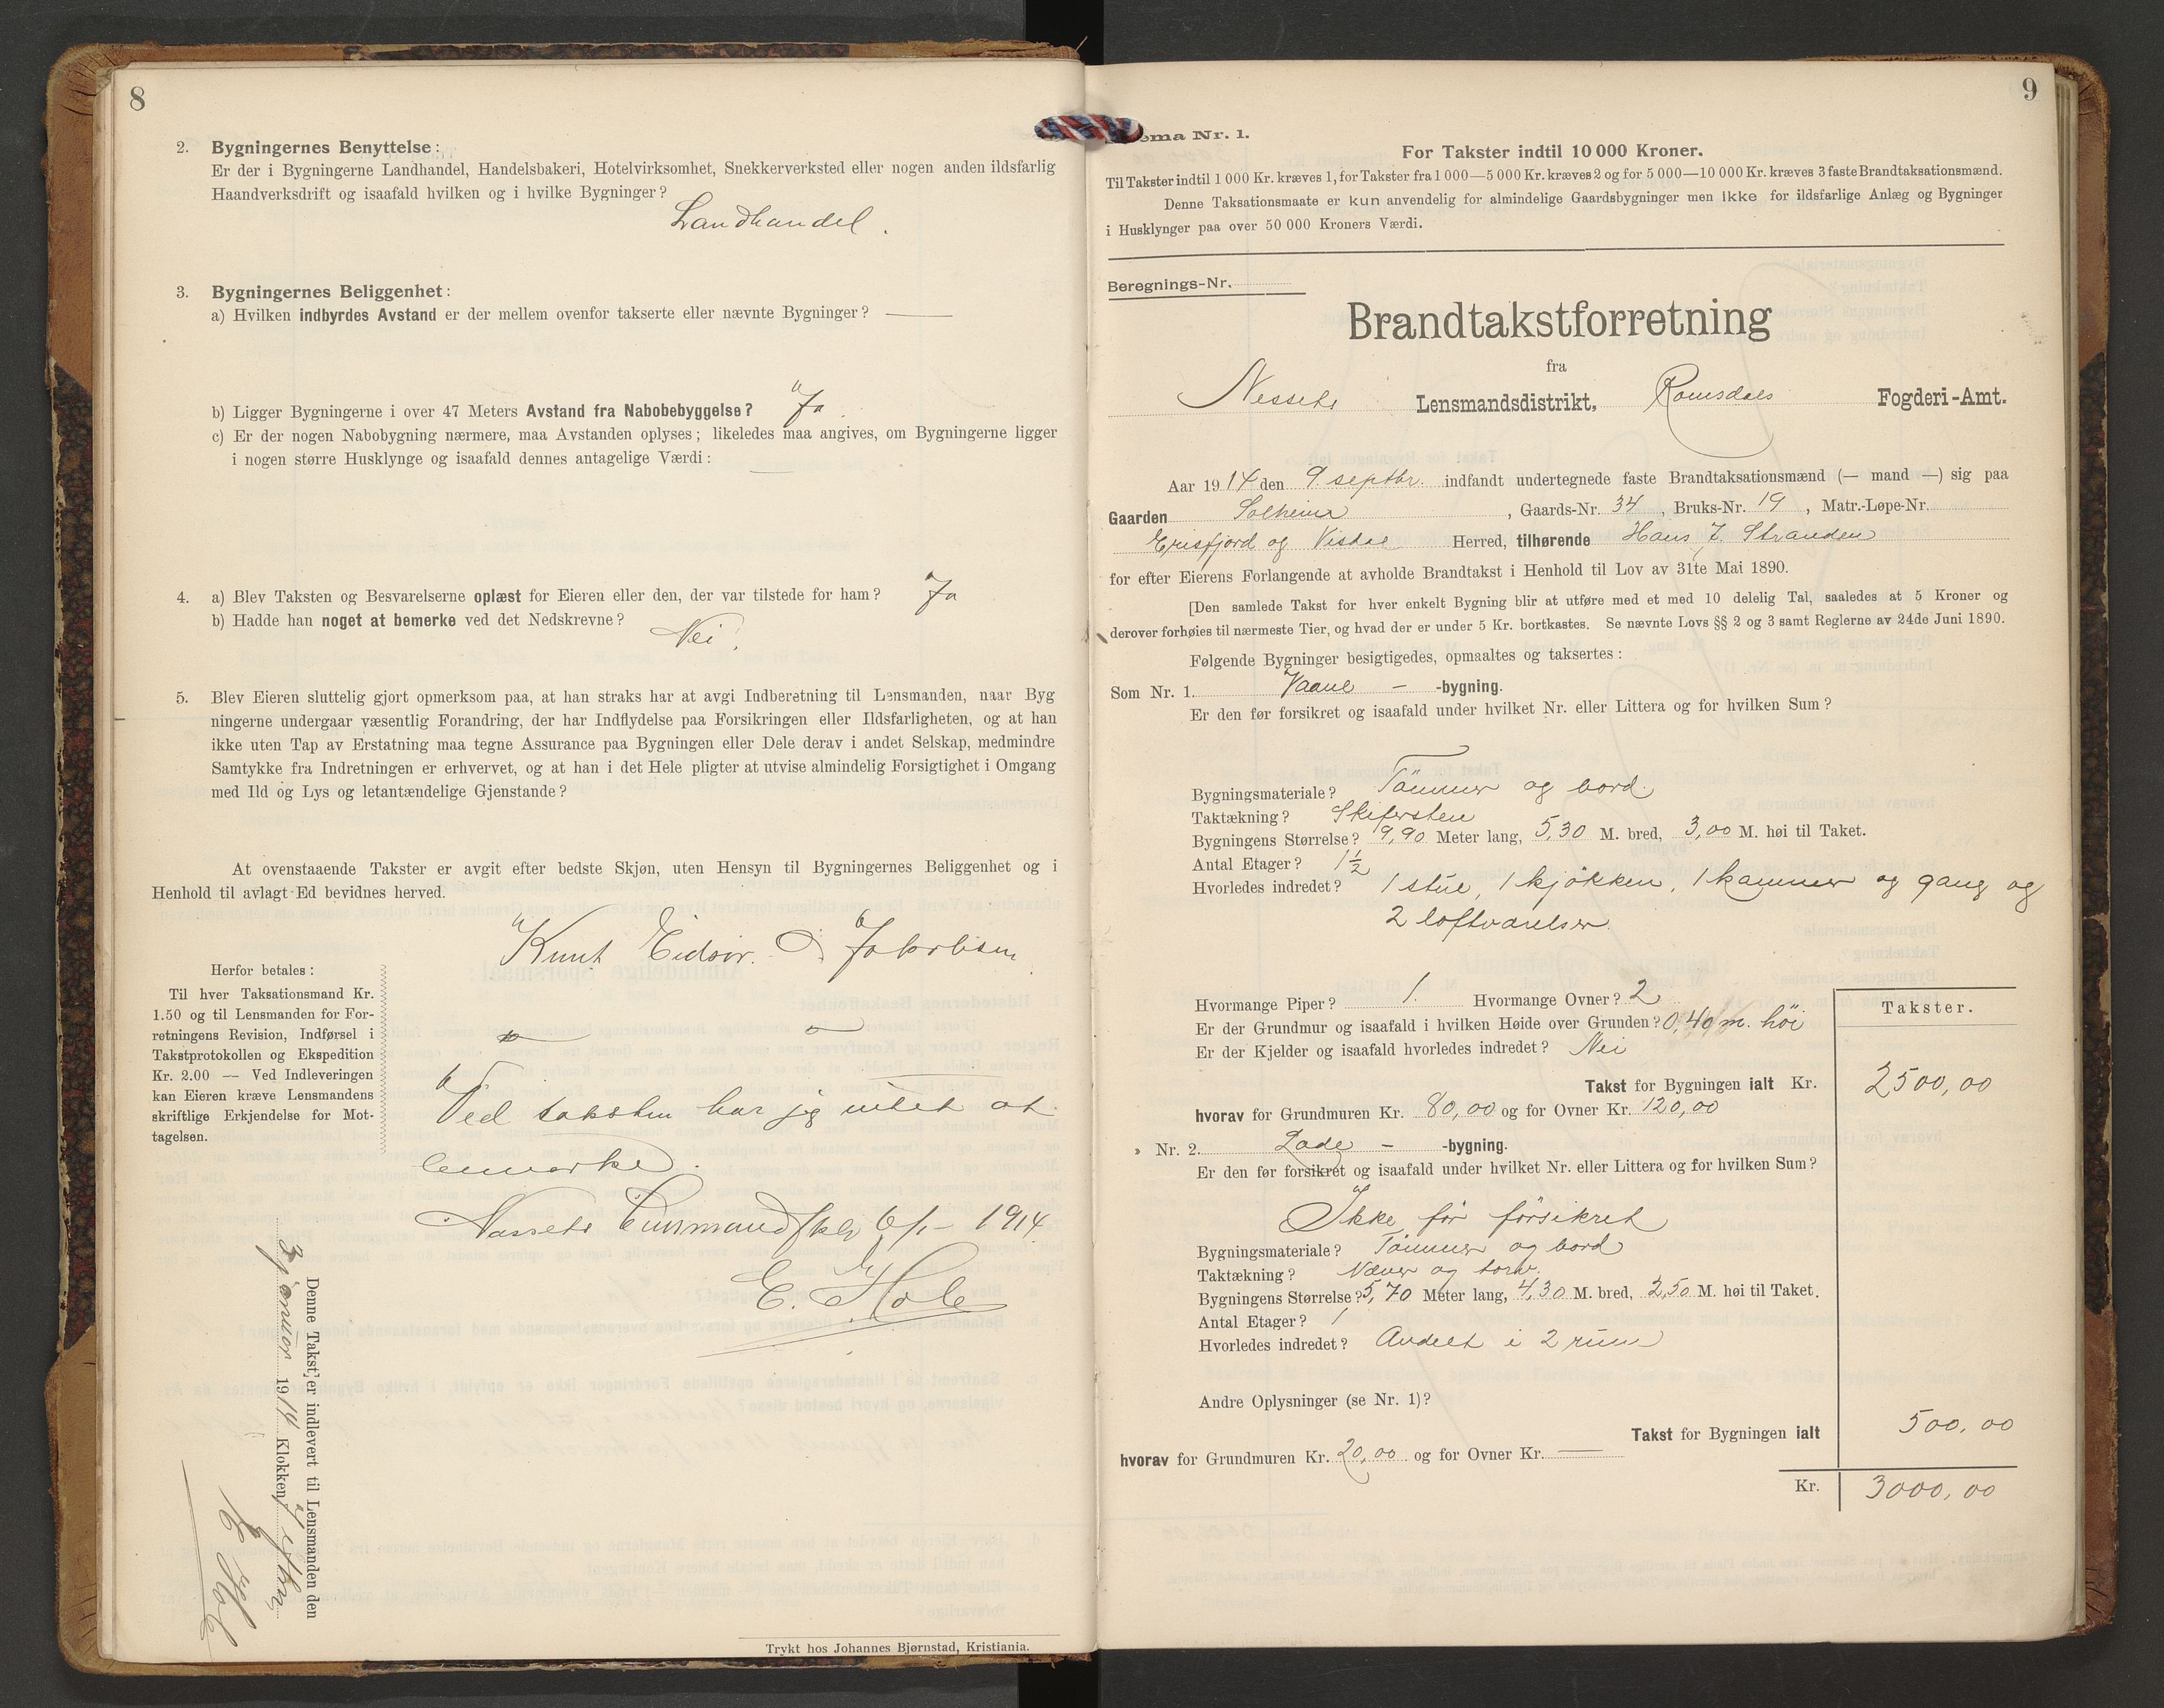 8
2. Bygningernes Benyttelse:
Er der i Bygningerne Landhandel, Handelsbakeri, Hotelvirksomhet, Snekkerverksted eller nogen anden ildsfarlig
Haandverksdrift og isaafald hvilken og i hvilke Bygninger?
Landhandel.
3. Bygningernes Beliggenhet:
a) Hvilken indbyrdes Avstand er der mellem ovenfor takserte eller nævnte Bygninger? —
b) Ligger Bygningerne i over 47 Meters Avstand fra Nabobebyggelse? Ja.
c) Er der nogen Nabobygning nærmere, maa Avstanden oplyses; likeledes maa angives, om Bygningerne ligger
i nogen større Husklynge og isaafald dennes antagelige Værdi: —
4. a) Blev Taksten og Besvarelserne oplæst for Eieren eller den, der var tilstede for ham? Ja
b) Hadde han noget at bemerke ved det Nedskrevne?
Nei.
5. Blev Eieren sluttelig gjort opmerksom paa, at han straks har at avgi Indberetning til Lensmanden, naar Byg
ningerne undergaar væsentlig Forandring, der har Indflydelse paa Forsikringen eller Ildsfarligheten, og at han
ikke uten Tap av Erstatning maa tegne Assurance paa Bygningen eller Dele derav i andet Selskap, medmindre
Samtykke fra Indretningen er erhvervet, og at han i det Hele pligter at utvise almindelig Forsigtighet i Omgang
med Ild og Lys og letantændelige Gjenstande?
At ovenstaaende Takster er avgit efter bedste Skjøn, uten Hensyn til Bygningernes Beliggenhet og i
Henhold til avlagt Ed bevidnes herved.
Knut Eidsør. Jakobsen
Herfor betales:
Til hver Taksationsmand Kr.
1.50 og til Lensmanden for For-
retningens Revision, Indførsel i
Takstprotokollen og Ekspedition
Kr. 2.00 — Ved Indleveringen
kan Eieren kræve Lensmandens
skriftlige Erkjendelse for Mot-
tagelsen.
Ved taksten har jeg intet at
bemerke.
Nessets Lensmand 6/1 - 1914
E. Hole
Denne Takst er indlevert til Lensmanden den
3 januar 1914 Klokken 4 efterm
E Hole
Trykt hos Johannes Bjørnstad, Kristiania.
9
ema Nr. 1.
For Takster indtil 10 000 Kroner.
Til Takster indtil 1 000 Kr. kræves 1, for Takster fra 1 000—5 000 Kr. kræves 2 og for 5 000—10 000 Kr. kræves 3 faste Brandtaksationsmænd.
Denne Taksationsmaate er kun anvendelig for almindelige Gaardsbygninger men ikke for ildsfarlige Anlæg og Bygninger
i Husklynger paa over 50 000 Kroners Værdi.
Beregnings-Nr.
Brandtakstforretning
fra
Nessets Lensmandsdistrikt, Romsdals Fogderi-Amt.
Aar 1914 den 9. septbr. indfandt undertegnede faste Brandtaksationsmænd (— mand —) sig paa
Gaarden Solheim, Gaards-Nr. 34, Bruks-Nr. 19, Matr.-Løpe-Nr.
Erisfjord og Visdal Herred, tilhørende Hans J. Stranden
for efter Eierens Forlangende at avholde Brandtakst i Henhold til Lov av 31te Mai 1890.
[Den samlede Takst for hver enkelt Bygning blir at utføre med et med 10 delelig Tal, saaledes at 5 Kroner og
derover forhøies til nærmeste Tier, og hvad der er under 5 Kr. bortkastes. Se nævnte Lovs §§ 2 og 3 samt Reglerne av 24de Juni 1890.
Følgende Bygninger besigtigedes, opmaaltes og taksertes:
Som Nr. 1. Vaane - -bygning.
Er den før forsikret og isaafald under hvilket Nr. eller Littera og for hvilken Sum?
Bygningsmateriale? Tömmer og bord.
Taktækning? Skifersten
Bygningens Størrelse? 9,90 Meter lang, 5,30 M. bred, 3,00 M. høi til Taket.
Antal Etager? 1½
Hvorledes indredet? 1 stue, 1 kjøkken, 1 kammer og gang og
2 loftværelser.
Hvormange Piper? 1. Hvormange Ovner? 2
Er der Grundmur og isaafald i hvilken Høide over Grunden? 0,40 m. höi
Er der Kjelder og isaafald hvorledes indredet? Nei
Takster.
Takst for Bygningen ialt Kr. 2500,00
hvorav for Grundmuren Kr. 80,00 og for Ovner Kr. 120,00
» Nr. 2. Lade - -bygning.
Er den før forsikret og isaafald under hvilket Nr. eller Littera og for hvilken Sum?
Ikke før forsikret
Bygningsmateriale? Tömmer og bord
Taktækning? Næver og torv.
Bygningens Størrelse? 5,70 Meter lang, 4,30 M. bred, 2,50 M. høi til Taket.
Antal Etager? 1
Hvorledes indredet? Avdelt i 2 rum
Andre Oplysninger (se Nr. 1)?
Takst for Bygningen ialt 500,00
hvorav for Grundmuren Kr. 20,00 og for Ovner Kr. —
Kr. 3000,00